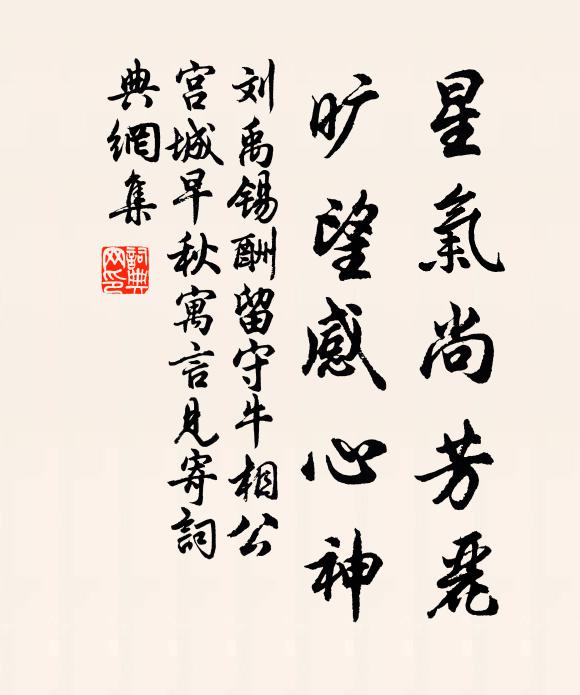 星氣尚芳麗
旷望感心神
刘禹锡酬留守牛相公
宮城早秋寓言見寄詞
典網集
詞典
网印